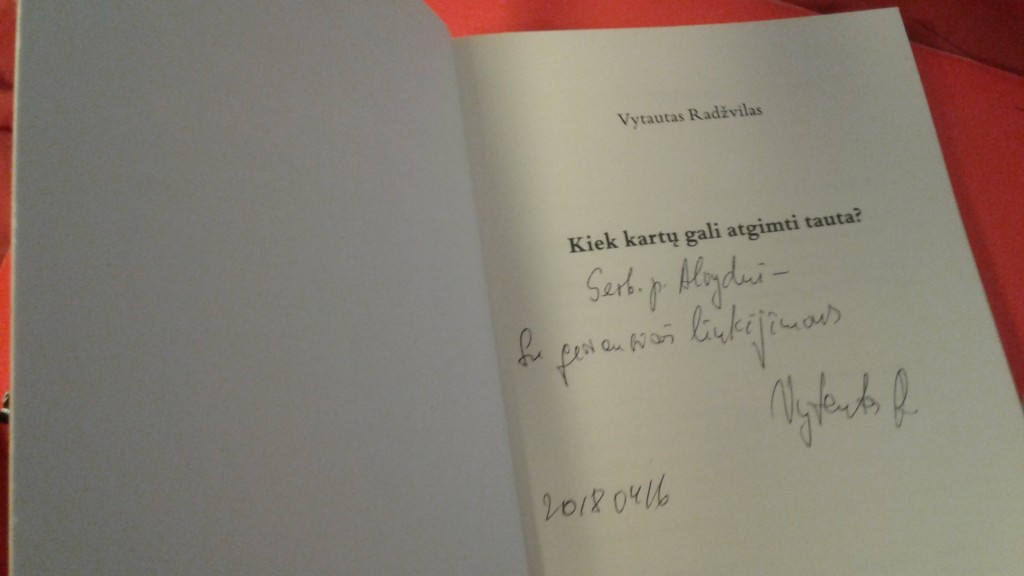 Vytautas Radžvilas
Kiek kartų gali atgimti tauta?
Gerb. p. Aloydui –
Su geriausiais linkėjimais
Vytautas R
2018 04 16